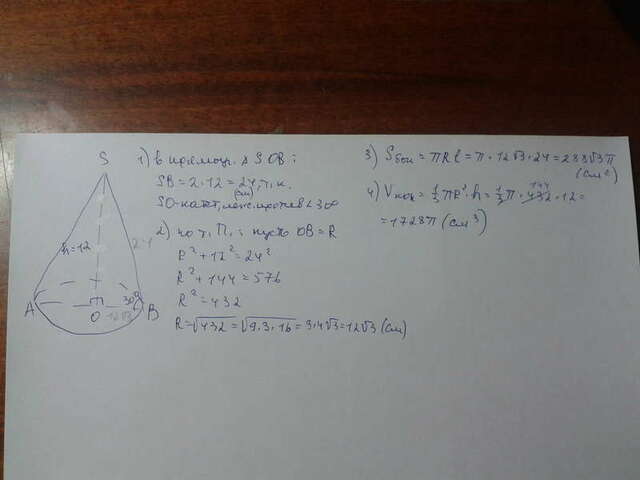 S
h=12
24
A
O
30°
B
12√3
1) в прямоуг. Δ SOB:
SB = 2·12 = 24, т.к.
(см)
SO-катет, леж. против ∠30°
2) по т. П.: пусть OB = R
R² + 12² = 24²
R² + 144 = 576
R² = 432
R = √432 = √9·3·16 = 3·4√3 = 12√3 (см)
3) Sбок = πRl = π·12√3·24 = 288√3π
(см²)
4) Vкон = 1/3 πR²·h = 1/3 π·432·12 =
144
= 1728π (см³)